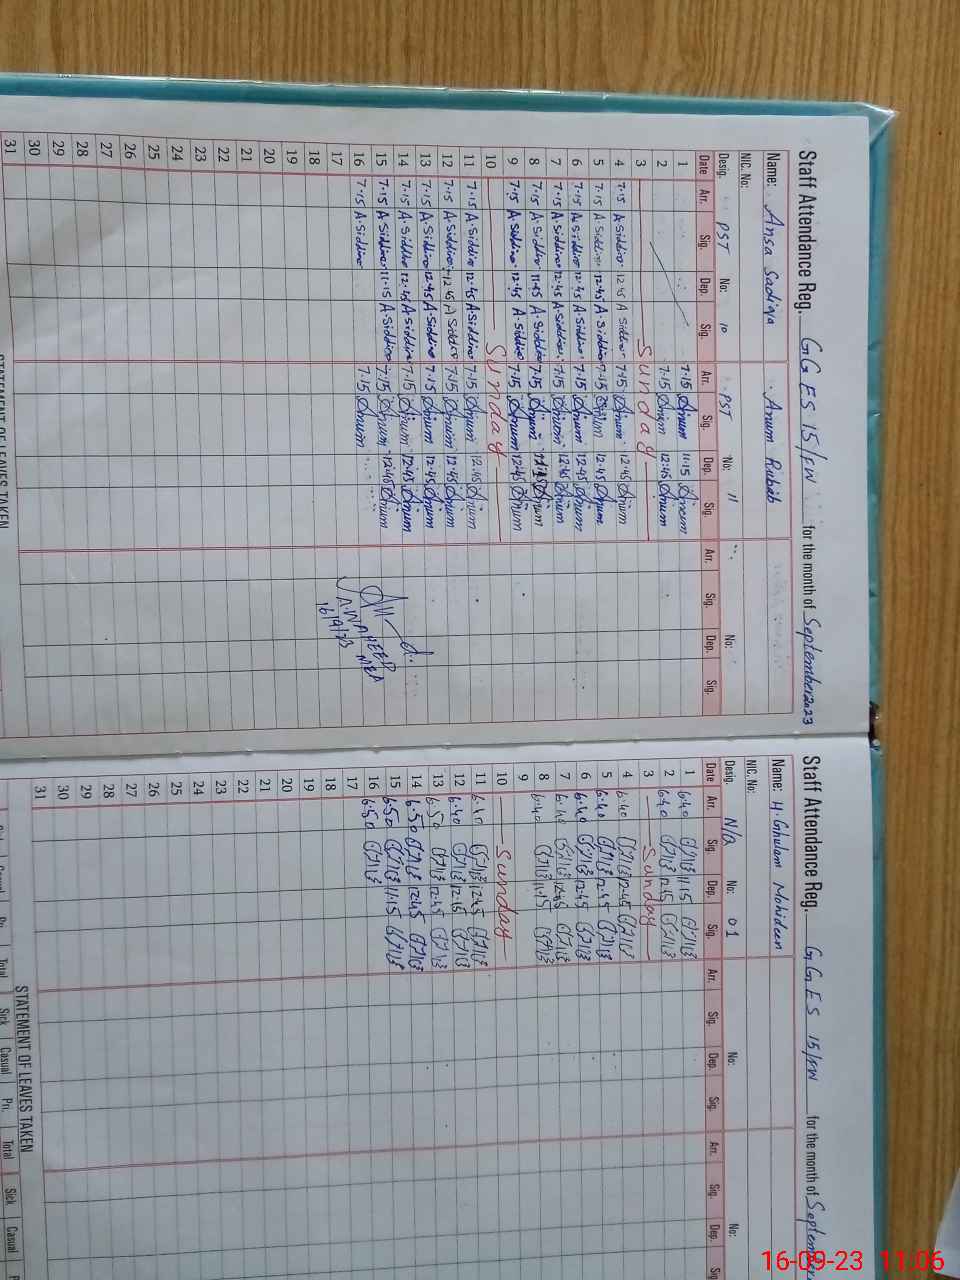 Staff Attendance Reg. GGES 15/FW for the month of September 2023
Name: Ansa Sadiqa Anum Rubab
NIC. No:
Desig. PST No: 10 PST No: 11 No:
Date Arr. Sig. Dep. Sig. Arr. Sig. Dep. Sig. Arr. Sig. Dep. Sig.
1 7.15 Anum 11.15 Anum
2 7.15 Anum 12.45 Anum
3 Sunday
4 7.15 A.Siddiqa 12.45 A.Siddiqa 7.15 Anum 12.45 Anum
5 7.15 A.Siddiqa 12.45 A.Siddiqa 7.15 Anum 12.45 Anum
6 7.15 A.Siddiqa 12.45 A.Siddiqa 7.15 Anum 12.45 Anum
7 7.15 A.Siddiqa 12.45 A.Siddiqa 7.15 Anum 12.45 Anum
8 7.15 A.Siddiqa 11.15 A.Siddiqa 7.15 Anum 11.15 Anum
9 7.15 A.Siddiqa 12.45 A.Siddiqa 7.15 Anum 12.45 Anum
10 Sunday
11 7.15 A.Siddiqa 12.45 A.Siddiqa 7.15 Anum 12.45 Anum
12 7.15 A.Siddiqa 12.45 A.Siddiqa 7.15 Anum 12.45 Anum
13 7.15 A.Siddiqa 12.45 A.Siddiqa 7.15 Anum 12.45 Anum
14 7.15 A.Siddiqa 12.45 A.Siddiqa 7.15 Anum 12.45 Anum
15 7.15 A.Siddiqa 11.15 A.Siddiqa 7.15 Anum 12.45 Anum
16 7.15 A.Siddiqa 7.15 Anum
A.WAHEED
MEA
16/9/23
17
18
19
20
21
22
23
24
25
26
27
28
29
30
31
STATEMENT OF LEAVES TAKEN
Staff Attendance Reg. GGES 15/FW for the month of September
Name: H. Ghulam Mohideen
NIC. No:
Desig. N/Q No: 01 No: No:
Date Arr. Sig. Dep. Sig. Arr. Sig. Dep. Sig. Arr. Sig. Dep.
1 6.40 11.15
2 6.40 12.45
3 Sunday
4 6.40 12.45
5 6.40 12.45
6 6.40 12.45
7 6.40 12.45
8 6.40 11.45
9
10 Sunday
11 6.40 12.45
12 6.40 12.45
13 6.50 12.45
14 6.50 12.45
15 6.50 11.15
16 6.50
17
18
19
20
21
22
23
24
25
26
27
28
29
30
31
STATEMENT OF LEAVES TAKEN
Total Sick Casual Pri. Total Sick Casual
16-09-23 11:06